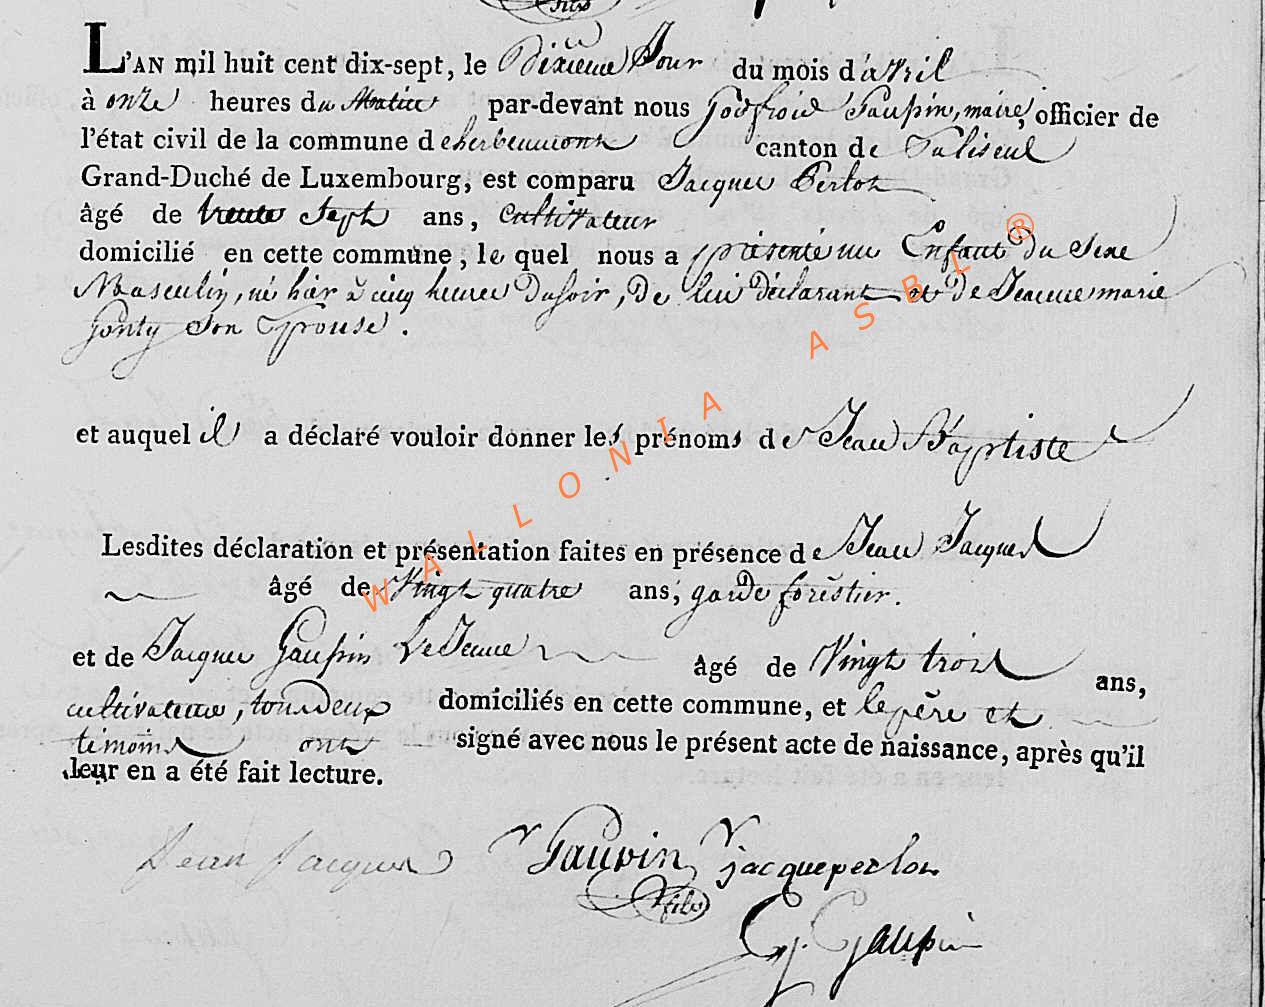 fils
L'AN mil huit cent dix-sept, le Dixieme Jour du mois d'avril
à onze heures du Matin par-devant nous Godfroid Gaupin, maire, officier de
l'état civil de la commune de herbeumont canton de Paliseul
Grand-Duché de Luxembourg, est comparu Jacques Perlot
âgé de trente Sept ans, Cultivateur
domicilié en cette commune, lequel nous a présenté un Enfant du Sexe
Masculin, né hier à cinq heures du soir, de lui déclarant et de Jeanne marie
Gonty Son Epouse.
et auquel il a déclaré vouloir donner les prénoms de Jean Baptiste
Lesdites déclaration et présentation faites en présence de Jean Jacques
âgé de Vingt quatre ans, garde forestier.
et de Jacques Gaupin Le Jeune âgé de Vingt trois ans,
cultivateur, tous deux domiciliés en cette commune, et le père et
témoins ont signé avec nous le présent acte de naissance, après qu'il
leur en a été fait lecture.
Jean Jacques Gaupin jacque perlot
fils
G. Gaupin
WALLONIA ASBL ®